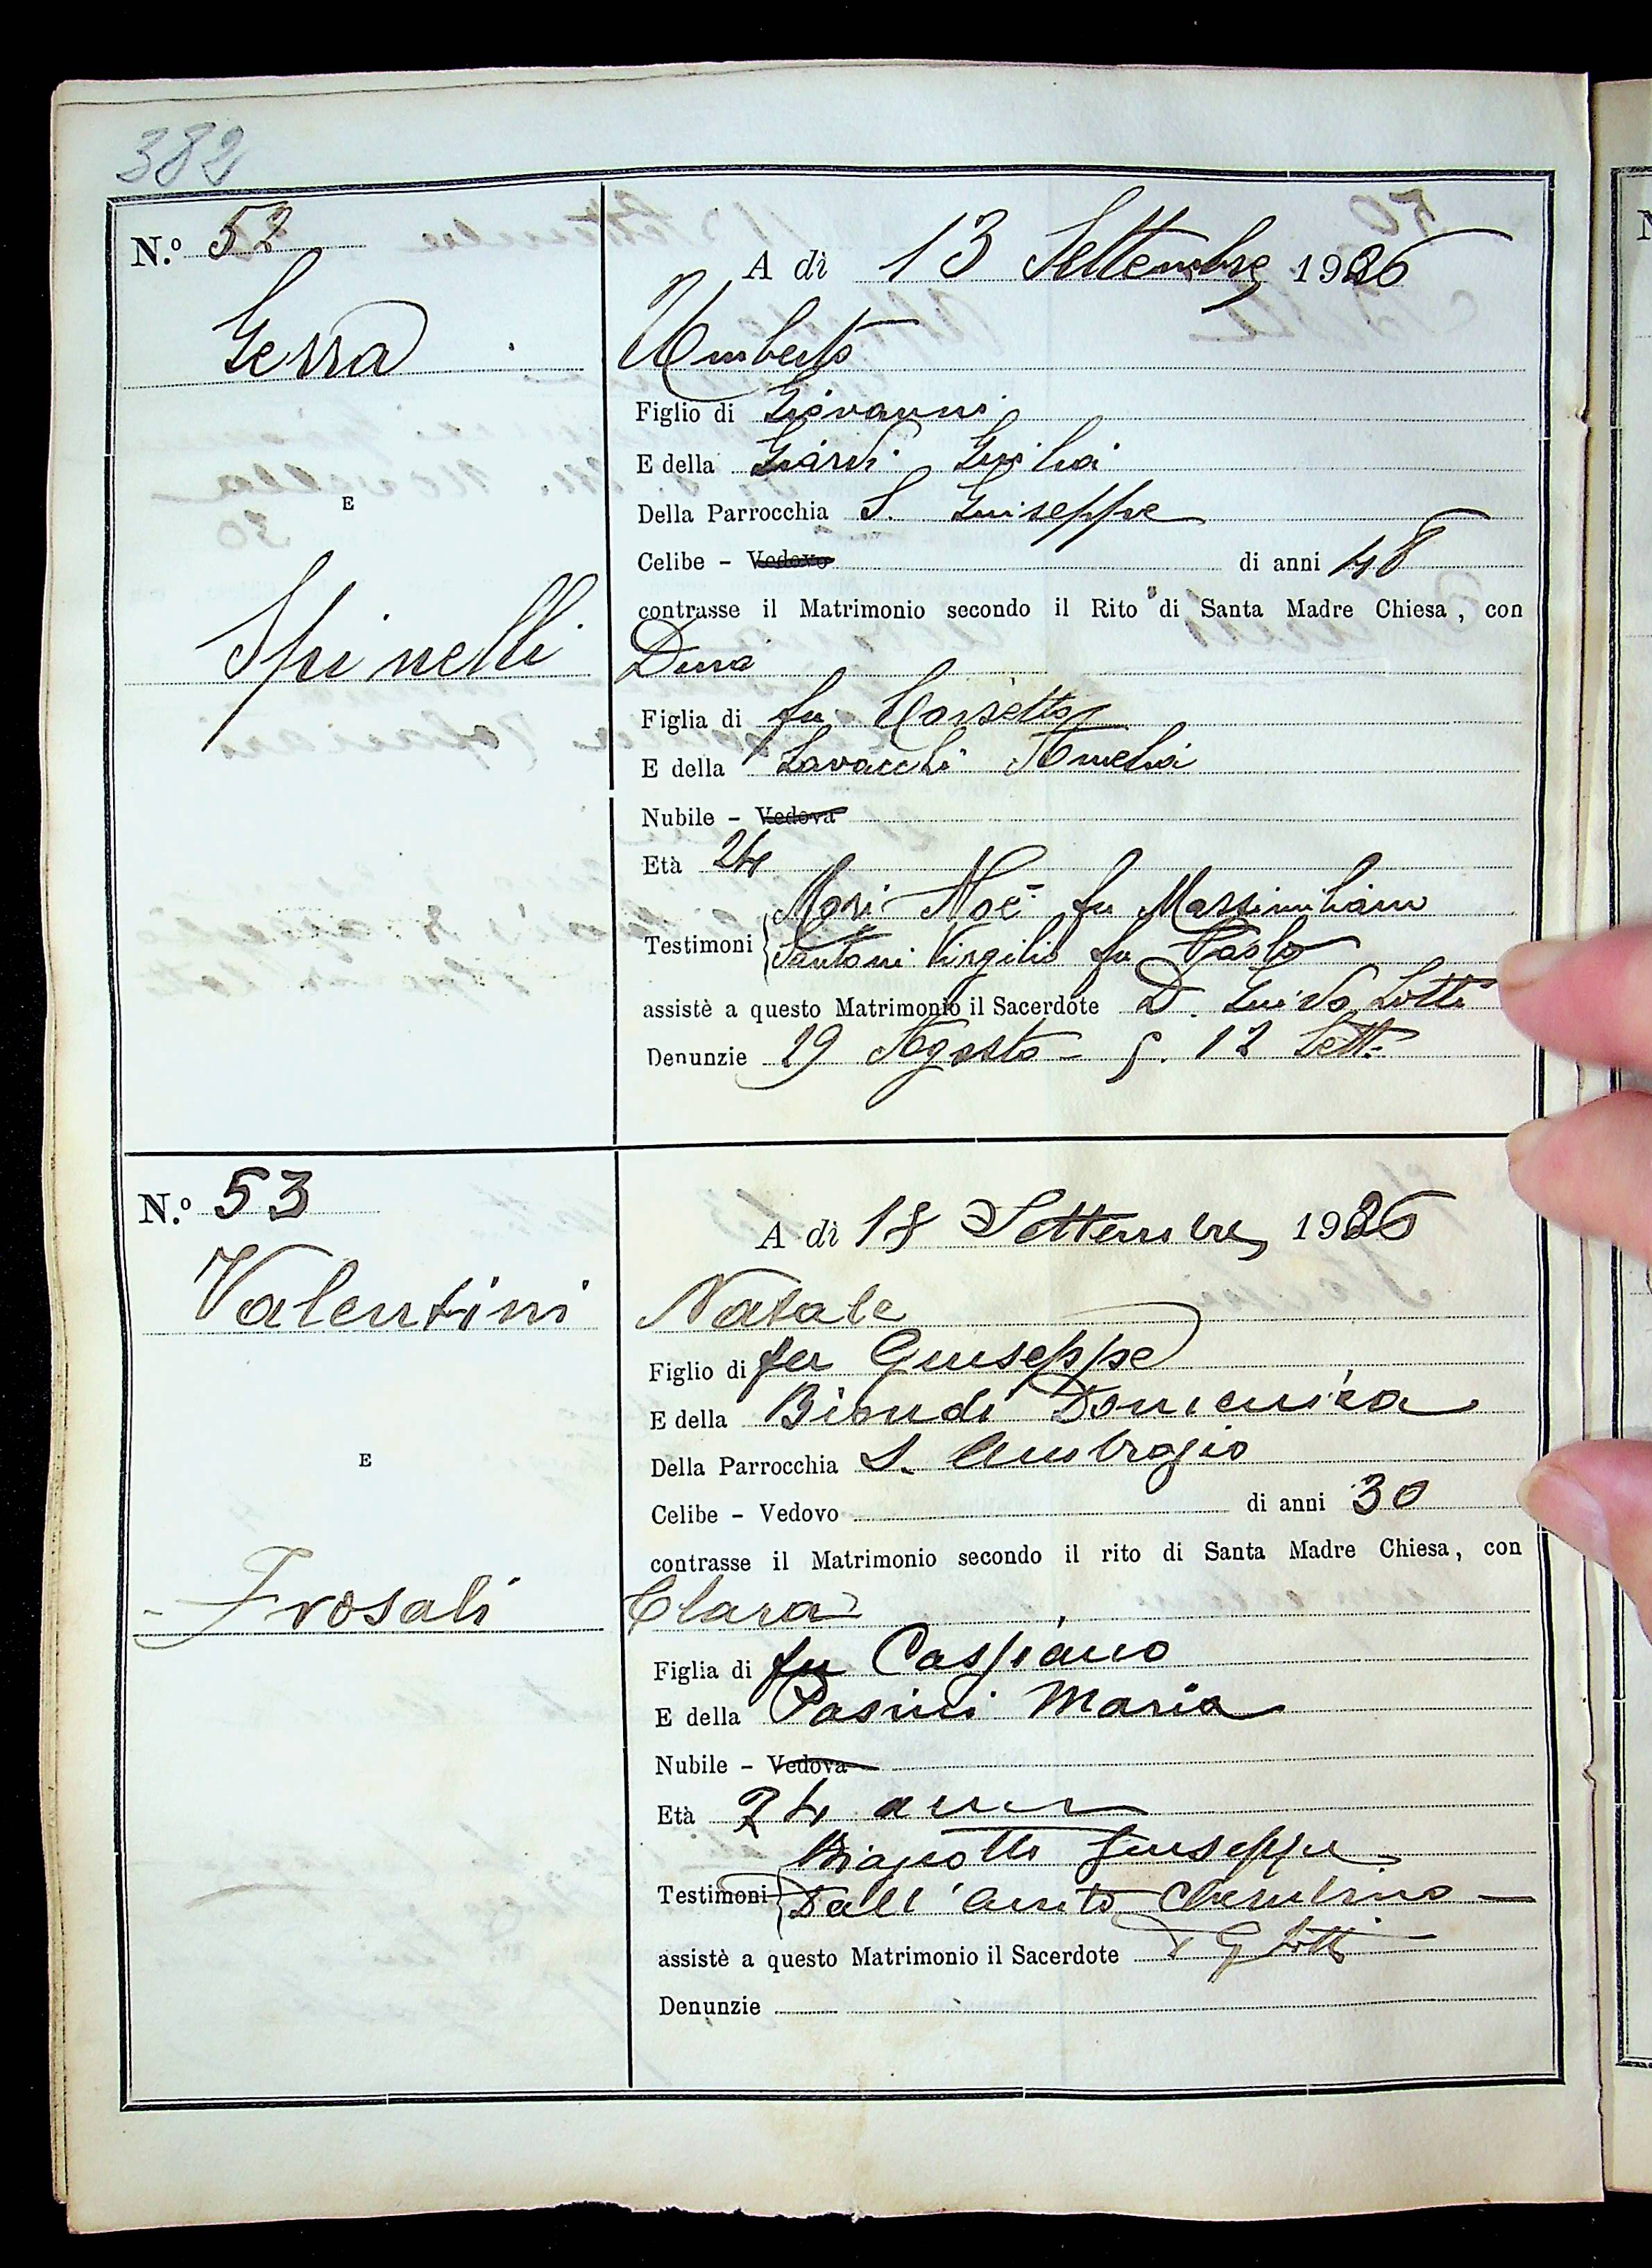 382
N.o 52
A dì 13 Settembre 1926
Gerra
Umberto
Figlio di Giovanni
E della Giardi Giulia
Della Parrocchia S. Giuseppe
E
Celibe - Vedovo di anni 48
contrasse il Matrimonio secondo il Rito di Santa Madre Chiesa, con
Spinelli
Dina
Figlia di fu
E della Lavacchi Amelia
Nubile - Vedova
Età 24
Mori Noè fu Massimiliano
Testimoni
Santoni Virgilio fu Paolo
assistè a questo Matrimonio il Sacerdote D. Guido Lotti
Denunzie 29 Agosto - 5. 12 Sett.
N.o 53
A dì 18 Settembre 1926
Valentini
Natale
Figlio di fu Giuseppe
E della Biondi Domenica
Della Parrocchia S. Ambrogio
E
Celibe - Vedovo di anni 30
contrasse il Matrimonio secondo il rito di Santa Madre Chiesa, con
Frosali
Clara
Figlia di fu
E della Pasini Maria
Nubile - Vedova
Età 24 anni
Giuseppe
Testimoni
Dall' Cherubino
assistè a questo Matrimonio il Sacerdote D G Lotti
Denunzie